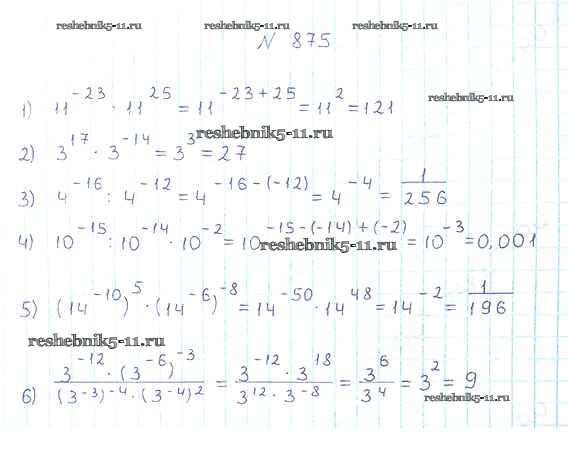 reshebnik5-11.ru reshebnik5-11.ru reshebnik5-11.ru
№ 875
reshebnik5-11.ru
1) 11^{-23} · 11^{25} = 11^{-23+25} = 11^{2} = 121
reshebnik5-11.ru
2) 3^{17} · 3^{-14} = 3^{3} = 27
3) 4^{-16} : 4^{-12} = 4^{-16-(-12)} = 4^{-4} = 1/256
4) 10^{-15} : 10^{-14} · 10^{-2} = 10^{-15-(-14)+(-2)} = 10^{-3} = 0,001
reshebnik5-11.ru
5) (14^{-10})^{5} · (14^{-6})^{-8} = 14^{-50} · 14^{48} = 14^{-2} = 1/196
reshebnik5-11.ru
6) (3^{-12} · (3^{-6})^{-3})/((3^{-3})^{-4} · (3^{-4})^{2}) = (3^{-12} · 3^{18})/(3^{12} · 3^{-8}) = 3^{6}/3^{4} = 3^{2} = 9
reshebnik5-11.ru